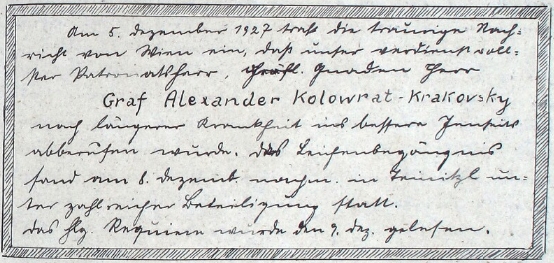 Am 5. Dezember 1927 traf die traurige Nach-
richt von Wien ein, daß unser verdienstvoll-
ster Patronatsherr, Gräfl. Gnaden Herr
Graf Alexander Kolowrat-Krakovsky
nach längerer Krankheit ins bessere Jenseits
abberufen wurde. Das Leichenbegängnis
fand am 8. Dezemb. nachm. in Teinitzl un-
ter zahlreicher Beteiligung statt.
Das hlg. Requiem wurde den 9. Dez. gelesen.